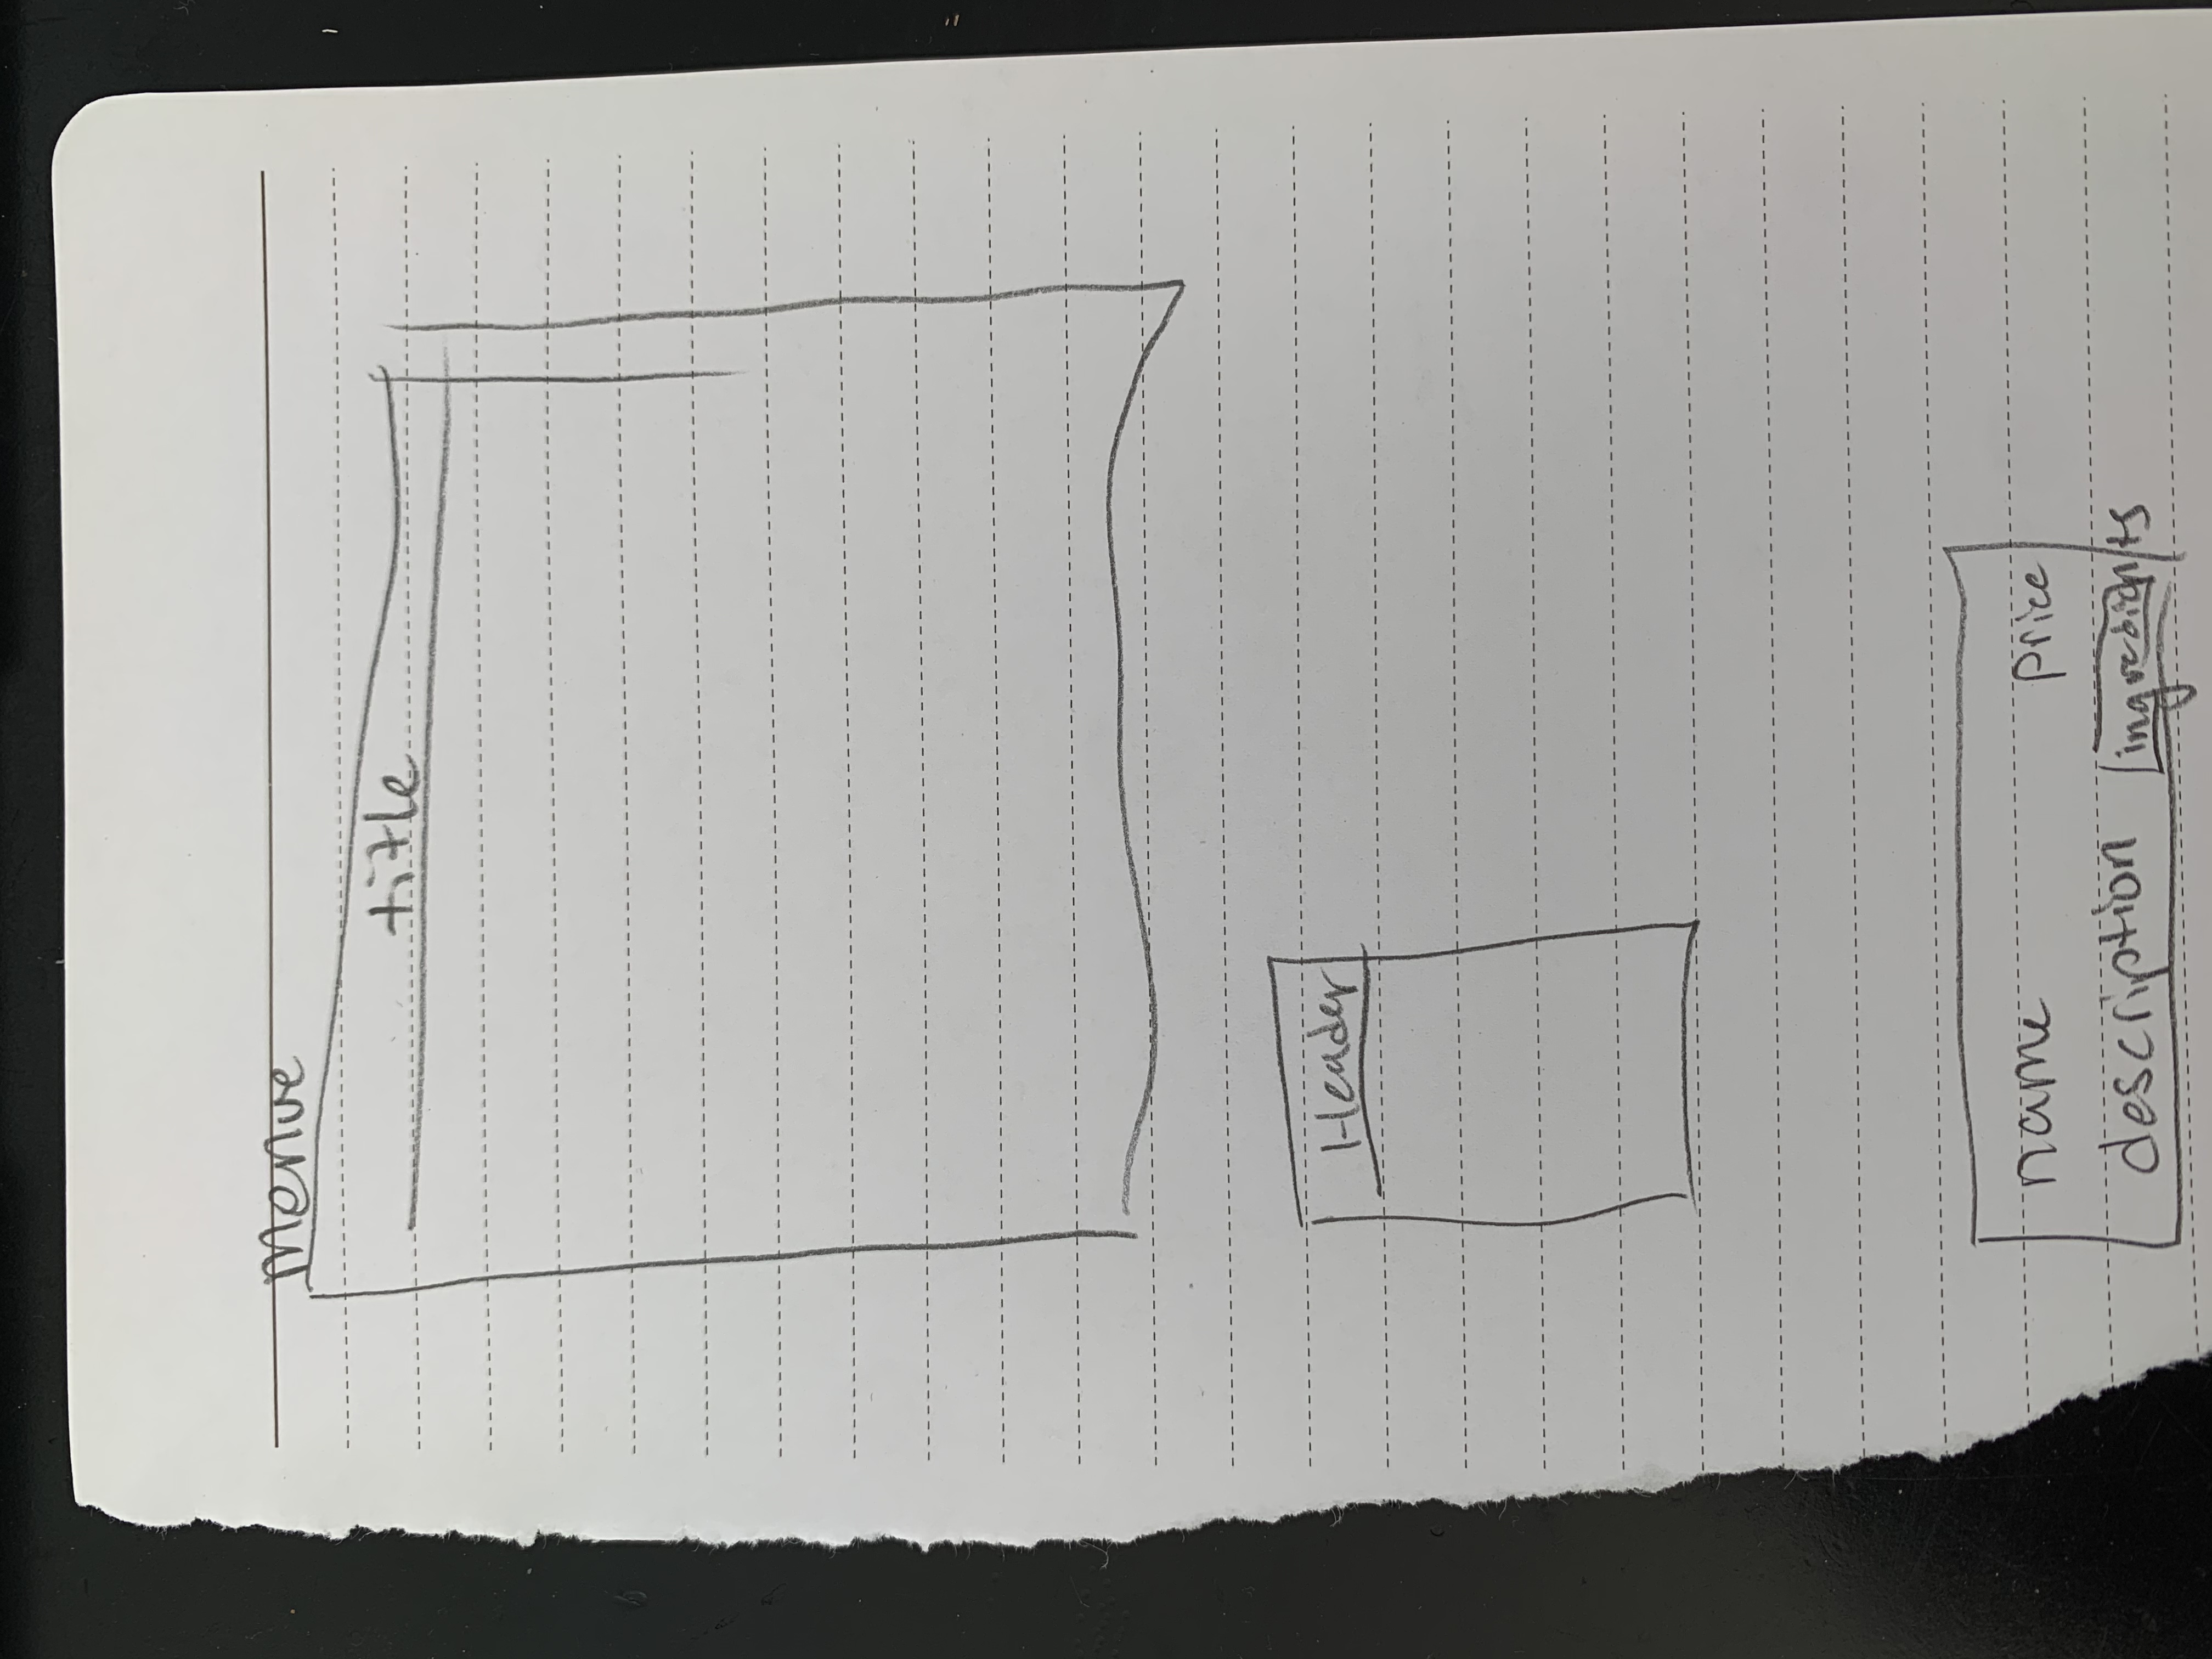 Menue
title
Header
name price
description ingredients